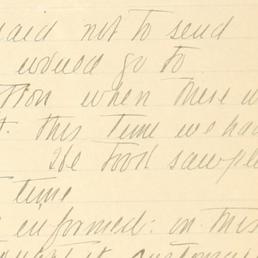 said not to send
would go to
tion when these w
t. this time we had
He took sample
time
informed: in this